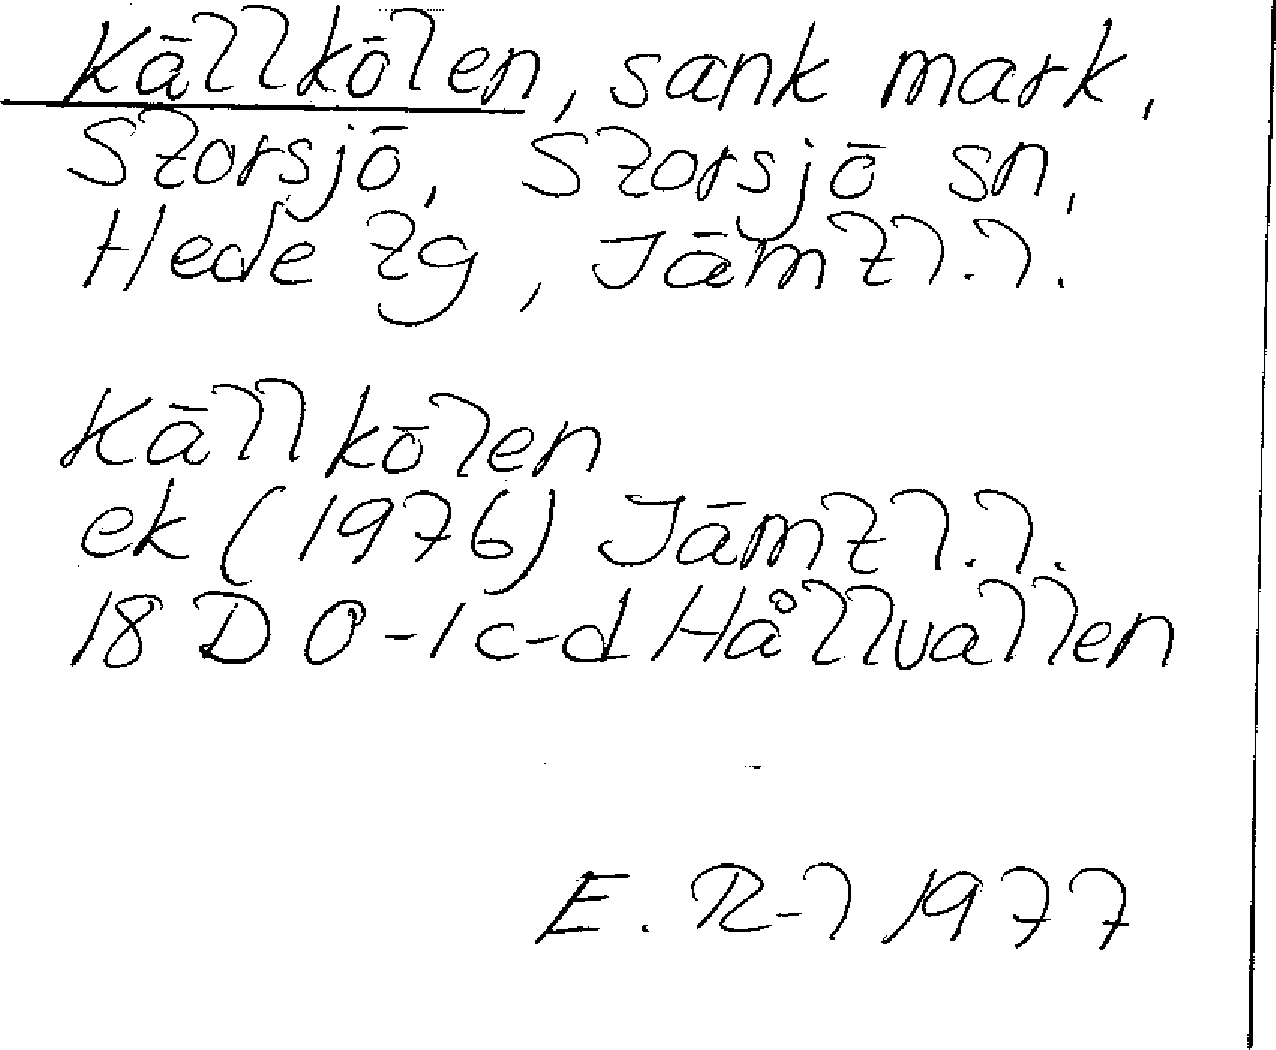 Källkölen, sank mark,
Storsjö, Storsjö sn,
Hede tg, Jämtl.l.
Källkölen
ek (1976) Jämtl.l.
18 D 0-1 c-d Hållvallen
E. R-l 1977